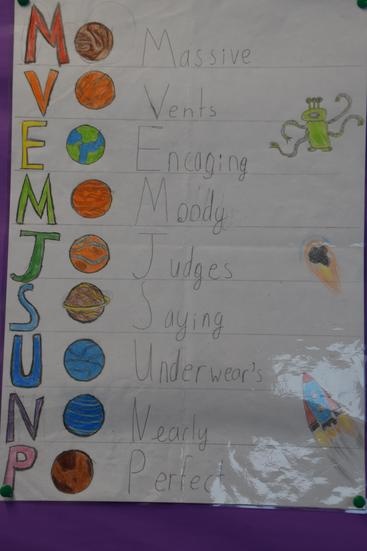 M Massive
V Vents
E Encaging
M Moody
J Judges
S Saying
U Underwear's
N Nearly
P Perfect